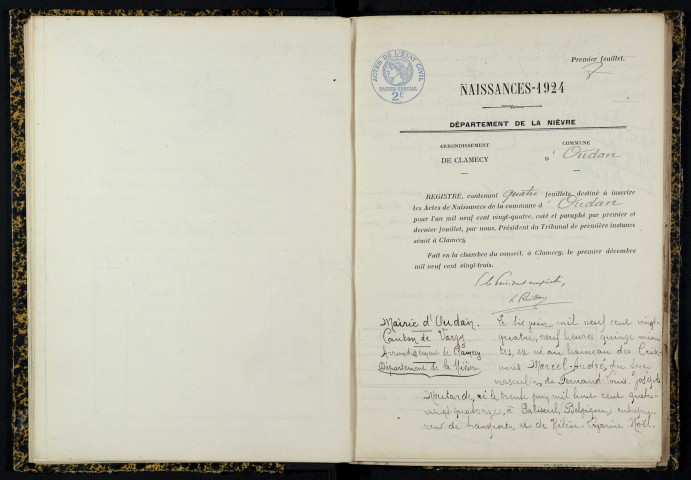 Premier feuillet.
ACTES DE L'ÉTAT CIVIL
PAPIER SPÉCIAL
2F
NAISSANCES-1924
DÉPARTEMENT DE LA NIÈVRE
ARRONDISSEMENT
DE CLAMECY
COMMUNE
D' Oudan
REGISTRE, contenant quatre feuillets, destiné à inscrire
les Actes de Naissances de la commune d' Oudan
pour l'an mil neuf cent vingt-quatre, coté et paraphé par premier et
dernier feuillet, par nous, Président du Tribunal de première instance
séant à Clamecy
Fait en la chambre du conseil, à Clamecy, le premier décembre
mil neuf cent vingt-trois.
Mairie d'Oudan.
Canton de Varzy
Arrondissement de Clamecy
Département de la Nièvre
Le six juin mil neuf cent vingt-
quatre, neuf heures quinze minu-
tes, est né au hameau des
Marcel-André, du sexe
masculin, de Fernand-Louis-Joseph
Moutarde, né le trente mil huit cent quatre-
vingt-quatorze, à Paliseul, Belgique, entrepre-
neur de transports, et de Hélène Noël.